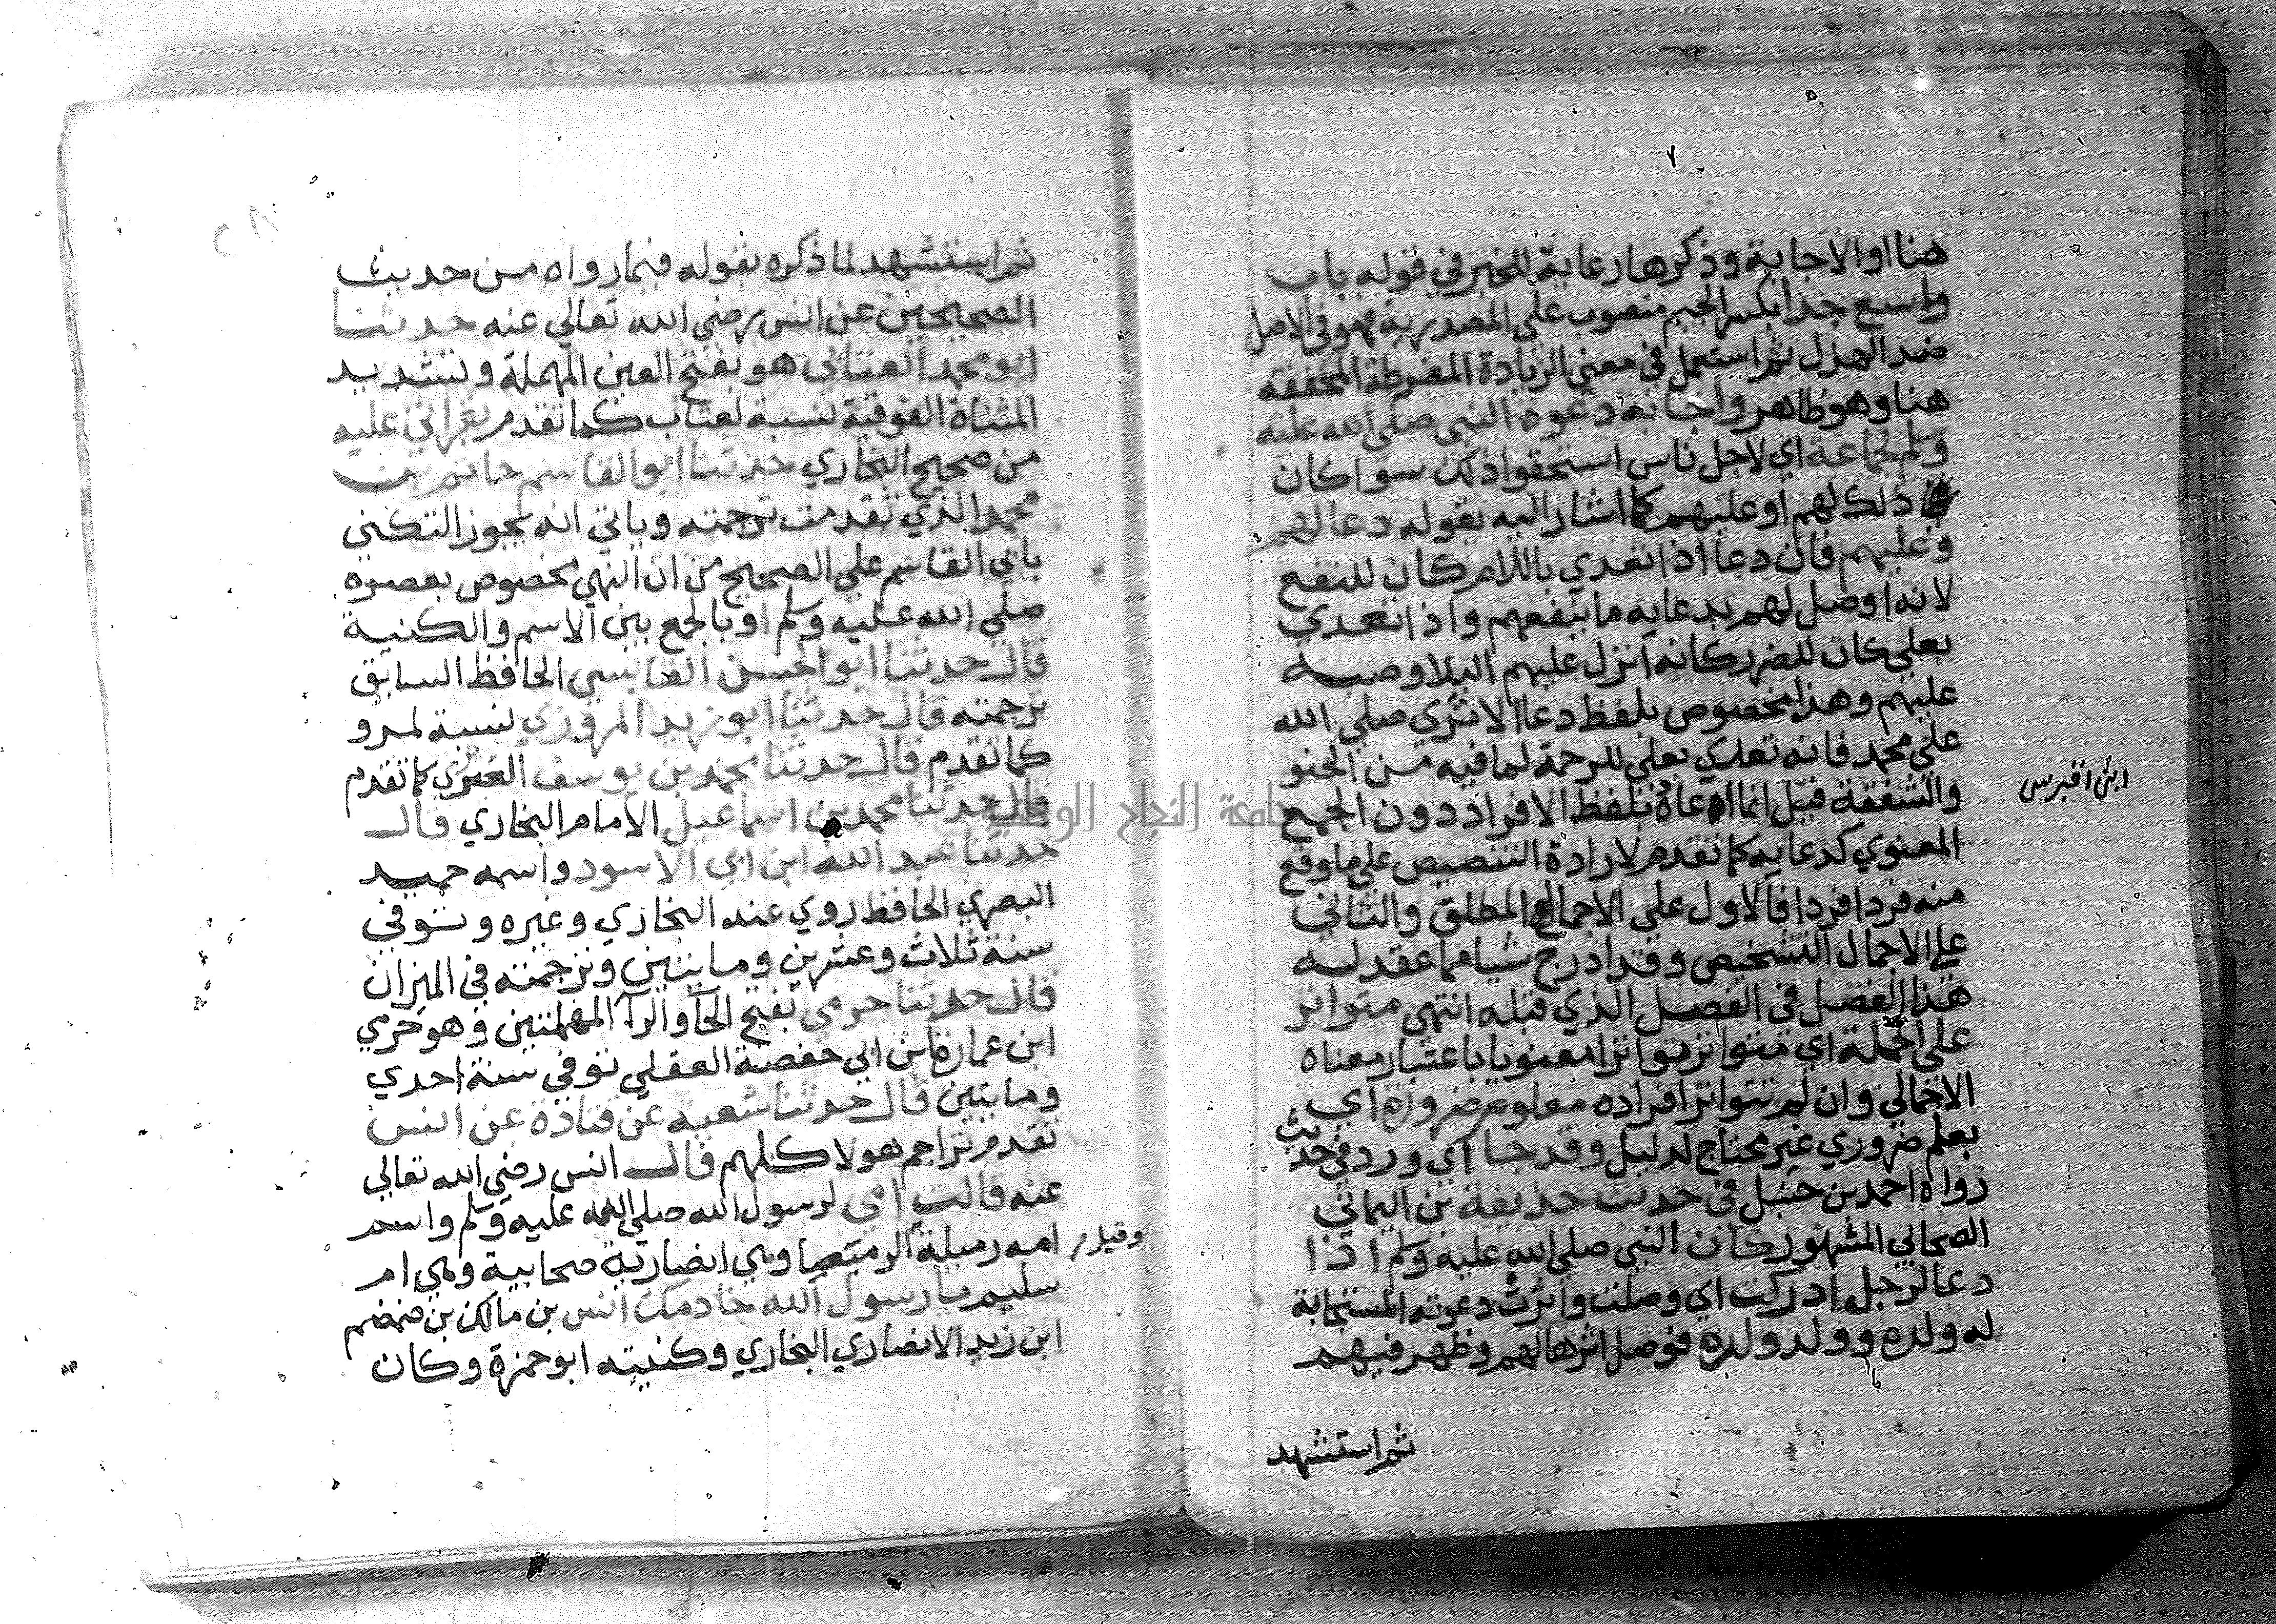 هنا او الاجابة وذكرها رعاية للخبر في قوله باب
واسع جدا بكسر الجيم منصوب علي المصدرية فهو في الاصل
ضد الهزل ثم استعمل في معني الزيادة المفرطة المحققة
هنا وهو ظاهر واجابة دعوة النبي صلي الله عليه
وسلم لجماعة اي لاجل ناس استحقوا ذلك سوا كان
ذلك لهم او عليهم كما اشار اليه بقوله دعا لهم
وعليهم فان دعا اذا تعدي باللام كان للنفع
لانه اوصل لهم بدعايه ما ينفعهم واذا تعدي
بعلي كان للضرر كانه انزل عليهم البلا وصبه
عليهم وهذا مخصوص بلفظ دعا الا تري صلي الله
علي محمد فانه تعدي بعلي للرحمة لما فيه من الحنو
والشفقة قيل انما ادعاه بلفظ الافراد دون الجمع
ابن اقبرس
المعنوي كدعايه كما تقدم لارادة التنصيص علي ما وقع
منه فردا فردا فالاول علي الاجمال المطلق والثاني
علي الاجمال التشخيص وقد ادرج شيا مما عقد له
هذا الفصل في الفصل الذي قبله انتهي متواتر
علي الجملة اي متواتر تواترا معنويا باعتبار معناه
الاجمالي وان لم تتواتر افراده معلوم ضرورة اي
بعلم ضروري غير محتاج لدليل وقد جا اي ورد في حديث
رواه احمد بن حنبل في حديث حذيفة بن اليماني
الصحابي المشهور كان النبي صلي الله عليه وسلم اذا
دعا لرجل ادركت اي وصلت واثرت دعوته المستجابة
له ولده وولد ولده فوصل اثرها لهم وظهر فيهم
ثم استشهد
ثم استشهد لما ذكره بقوله فيما رواه من حديث
الصحيحين عن انس رضي الله تعالي عنه حدثنا
ابو محمد العتابي هو بفتح العين المهملة وتشديد
المثناة الفوقية نسبة لعتاب كما تقدم بقراتي عليه
من صحيح البخاري حدثنا ابو القاسم حاتم بن
محمد الذي تقدمت ترجمته وياتي انه يجوز التكني
بابي القاسم علي الصحيح من ان النهي مخصوص بعصره
صلي الله عليه وسلم او بالجمع بين الاسم والكنية
قال حدثنا ابو الحسن القابسي الحافظ السابق
ترجمته قال حدثنا ابو زيد المروزي نسبة لمرو
كما تقدم قال حدثنا محمد بن يوسف الفربري كما تقدم
قال حدثنا محمد بن اسماعيل الامام البخاري قال
جامعة النجاح الوطنية
حدثنا عبد الله ابن ابي الاسود واسمه حميد
البصري الحافظ روي عنه البخاري وغيره وتوفي
سنة ثلاث وعشرين ومايتين وترجمته في الميزان
قال حدثنا حرمي بفتح الحآ والرآ المهملتين وهو حرمي
ابن عمارة بن ابي حفصة العقلي توفي سنة احدي
ومايتين قال حدثنا شعبه عن قتادة عن انس
تقدم تراجم هولا كلهم قال انس رضي الله تعالي
عنه قالت امي لرسول الله صلي الله عليه وسلم واسم
امه رميلة وقيل الرميصا وهي انصارية صحابية وهي ام
سليم يا رسول الله خادمك انس بن مالك بن ضمضم
ابن زيد الانصاري البخاري وكنيته ابو حمزة وكان